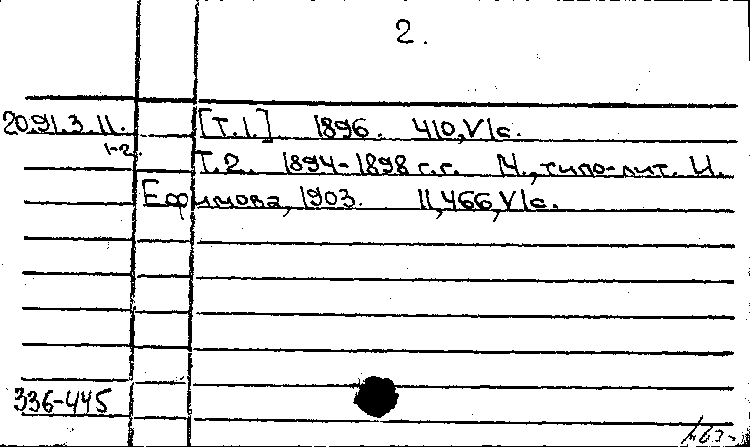 2.
20.91.3.11. [Т.1.] 1896. 410,VIс.
1-2.
Т.2. 1894-1898 г.г. М., типо-лит. И.
Ефимова, 1903. II,466,VIс.
336-445